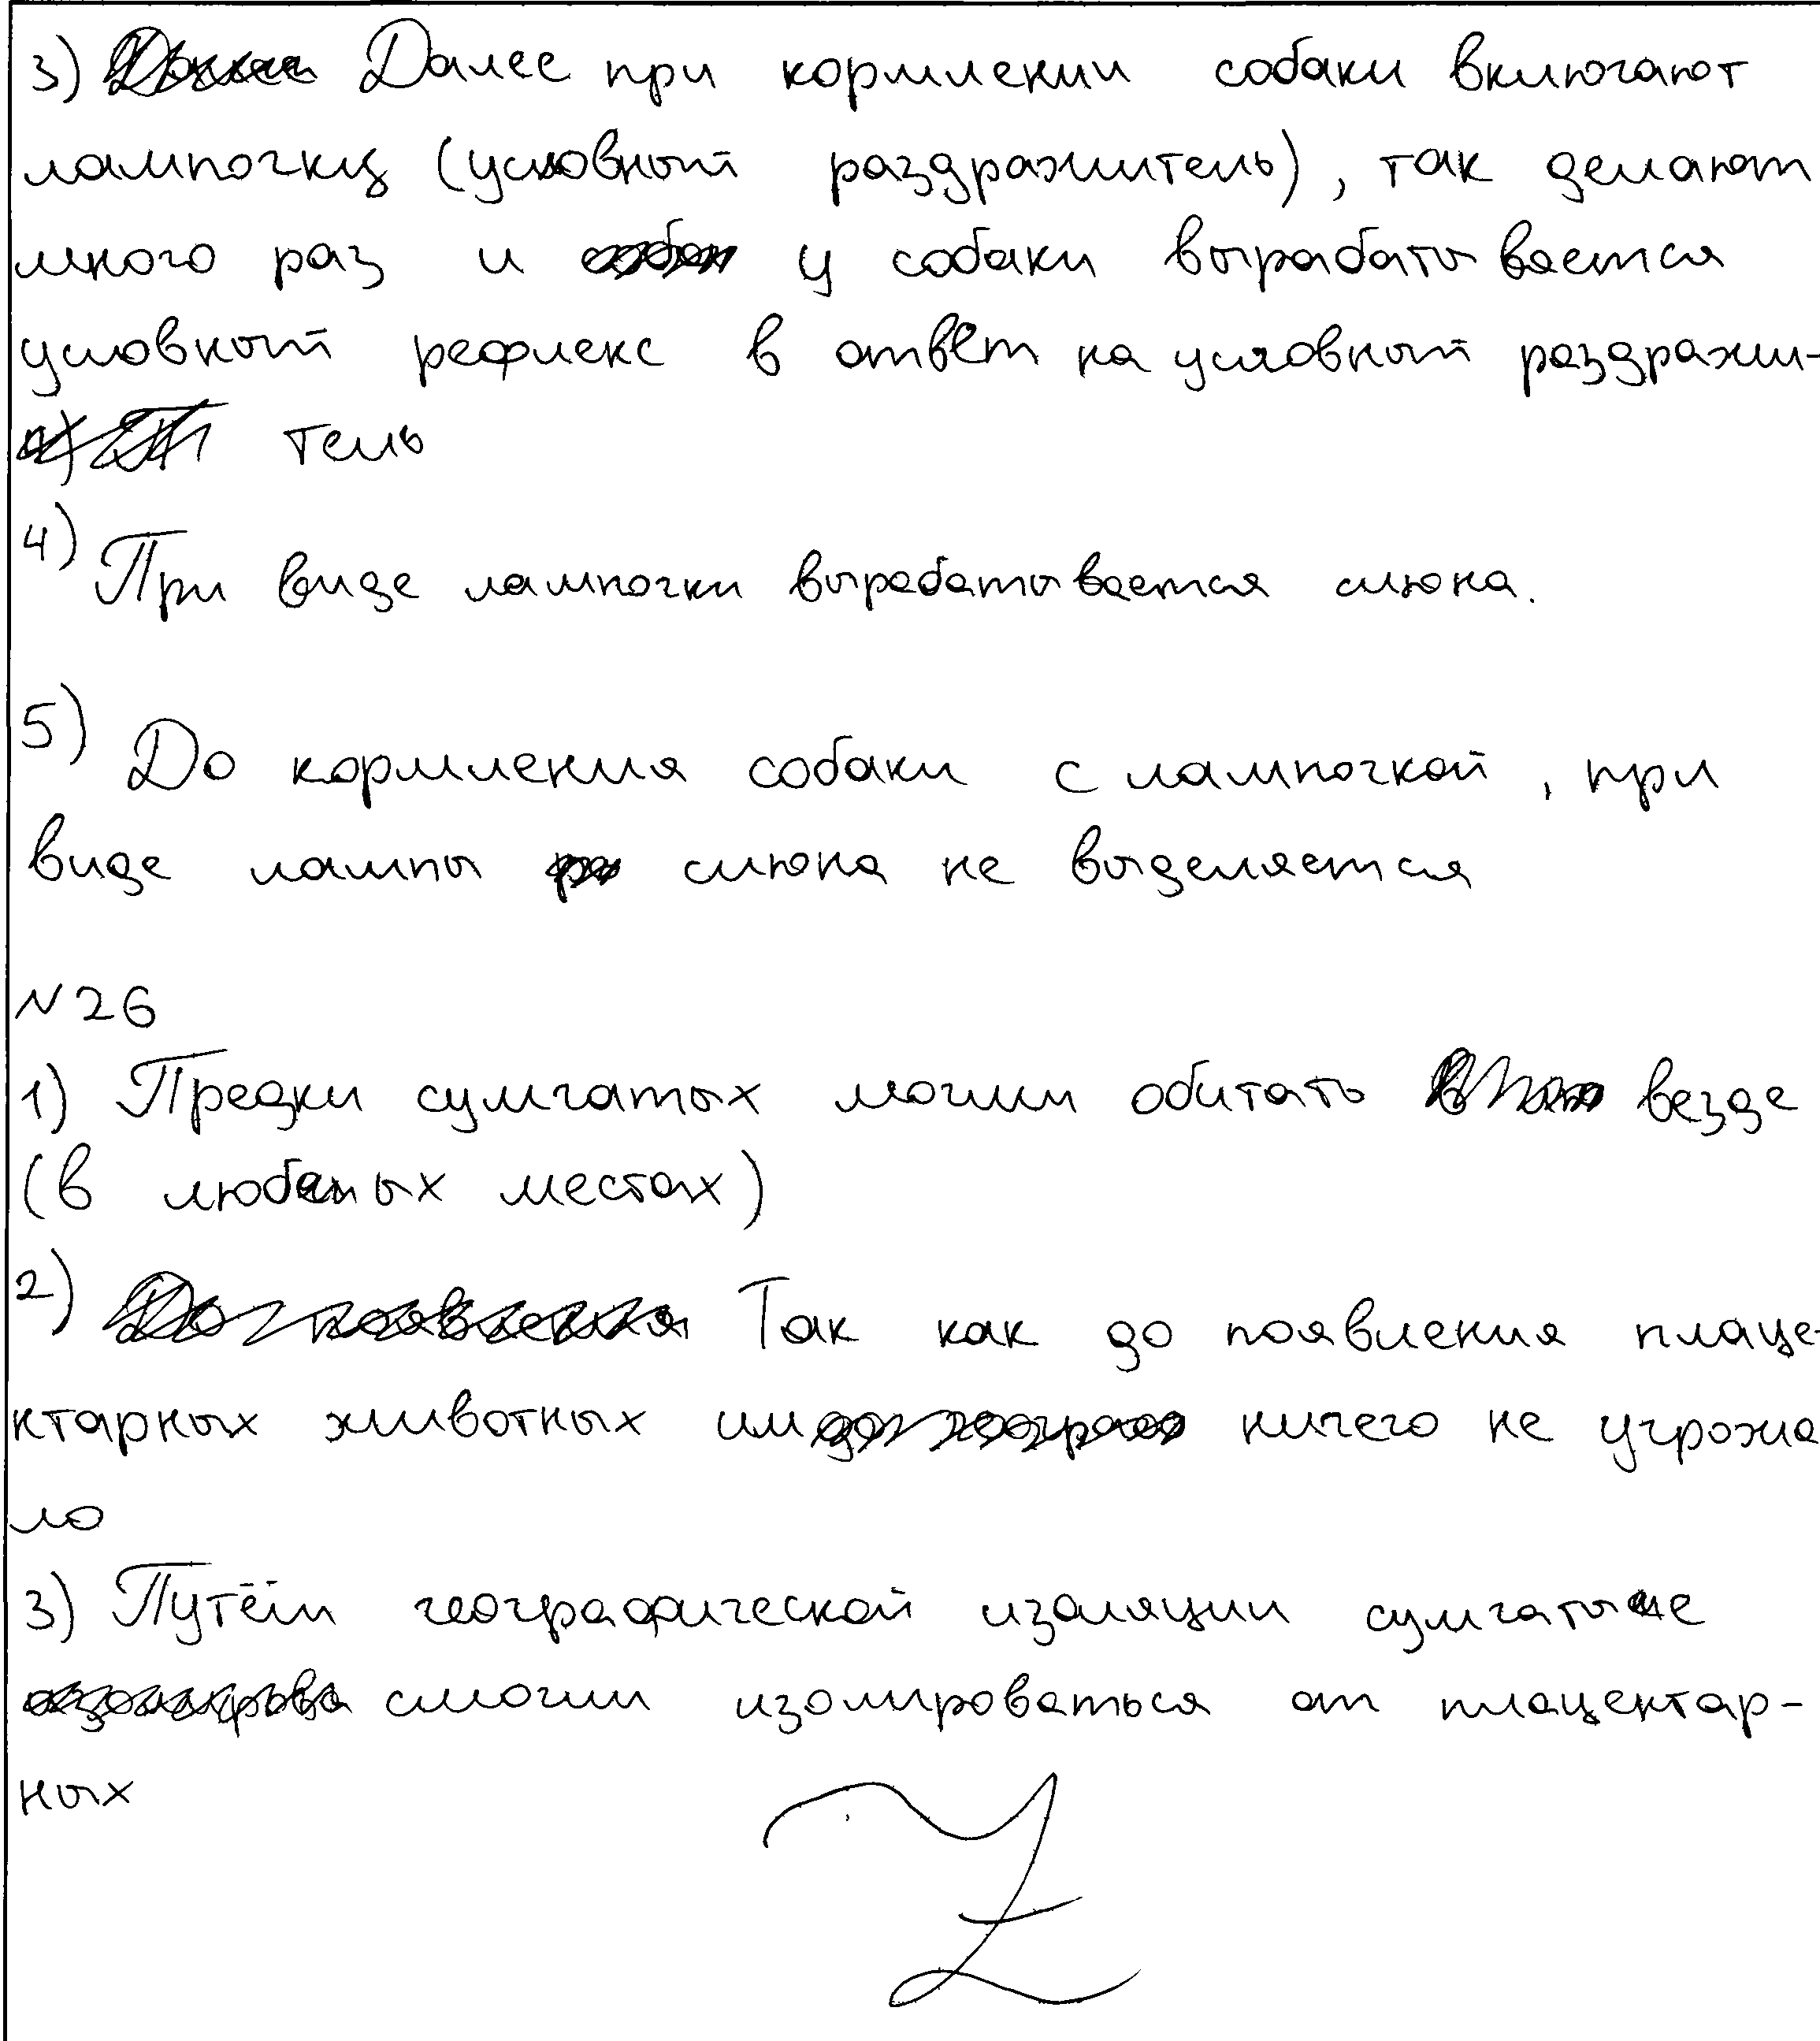 3) Далее при кормлении собаки включают
лампочку (условный раздражитель), так делают
много раз и у собаки вырабатывается
условный рефлекс в ответ на условный раздражи-
тель
4) При виде лампочки вырабатывается слюна.
5) До кормления собаки с лампочкой, при
виде лампы слюна не выделяется
№26
1) Предки сумчатых могли обитать везде
(в любых местах)
2) Так как до появления плаце-
нтарных животных им ничего не угрожа
ло
3) Путём географической изоляции сумчатые
смогли изолироваться от плацентар-
ных
Z